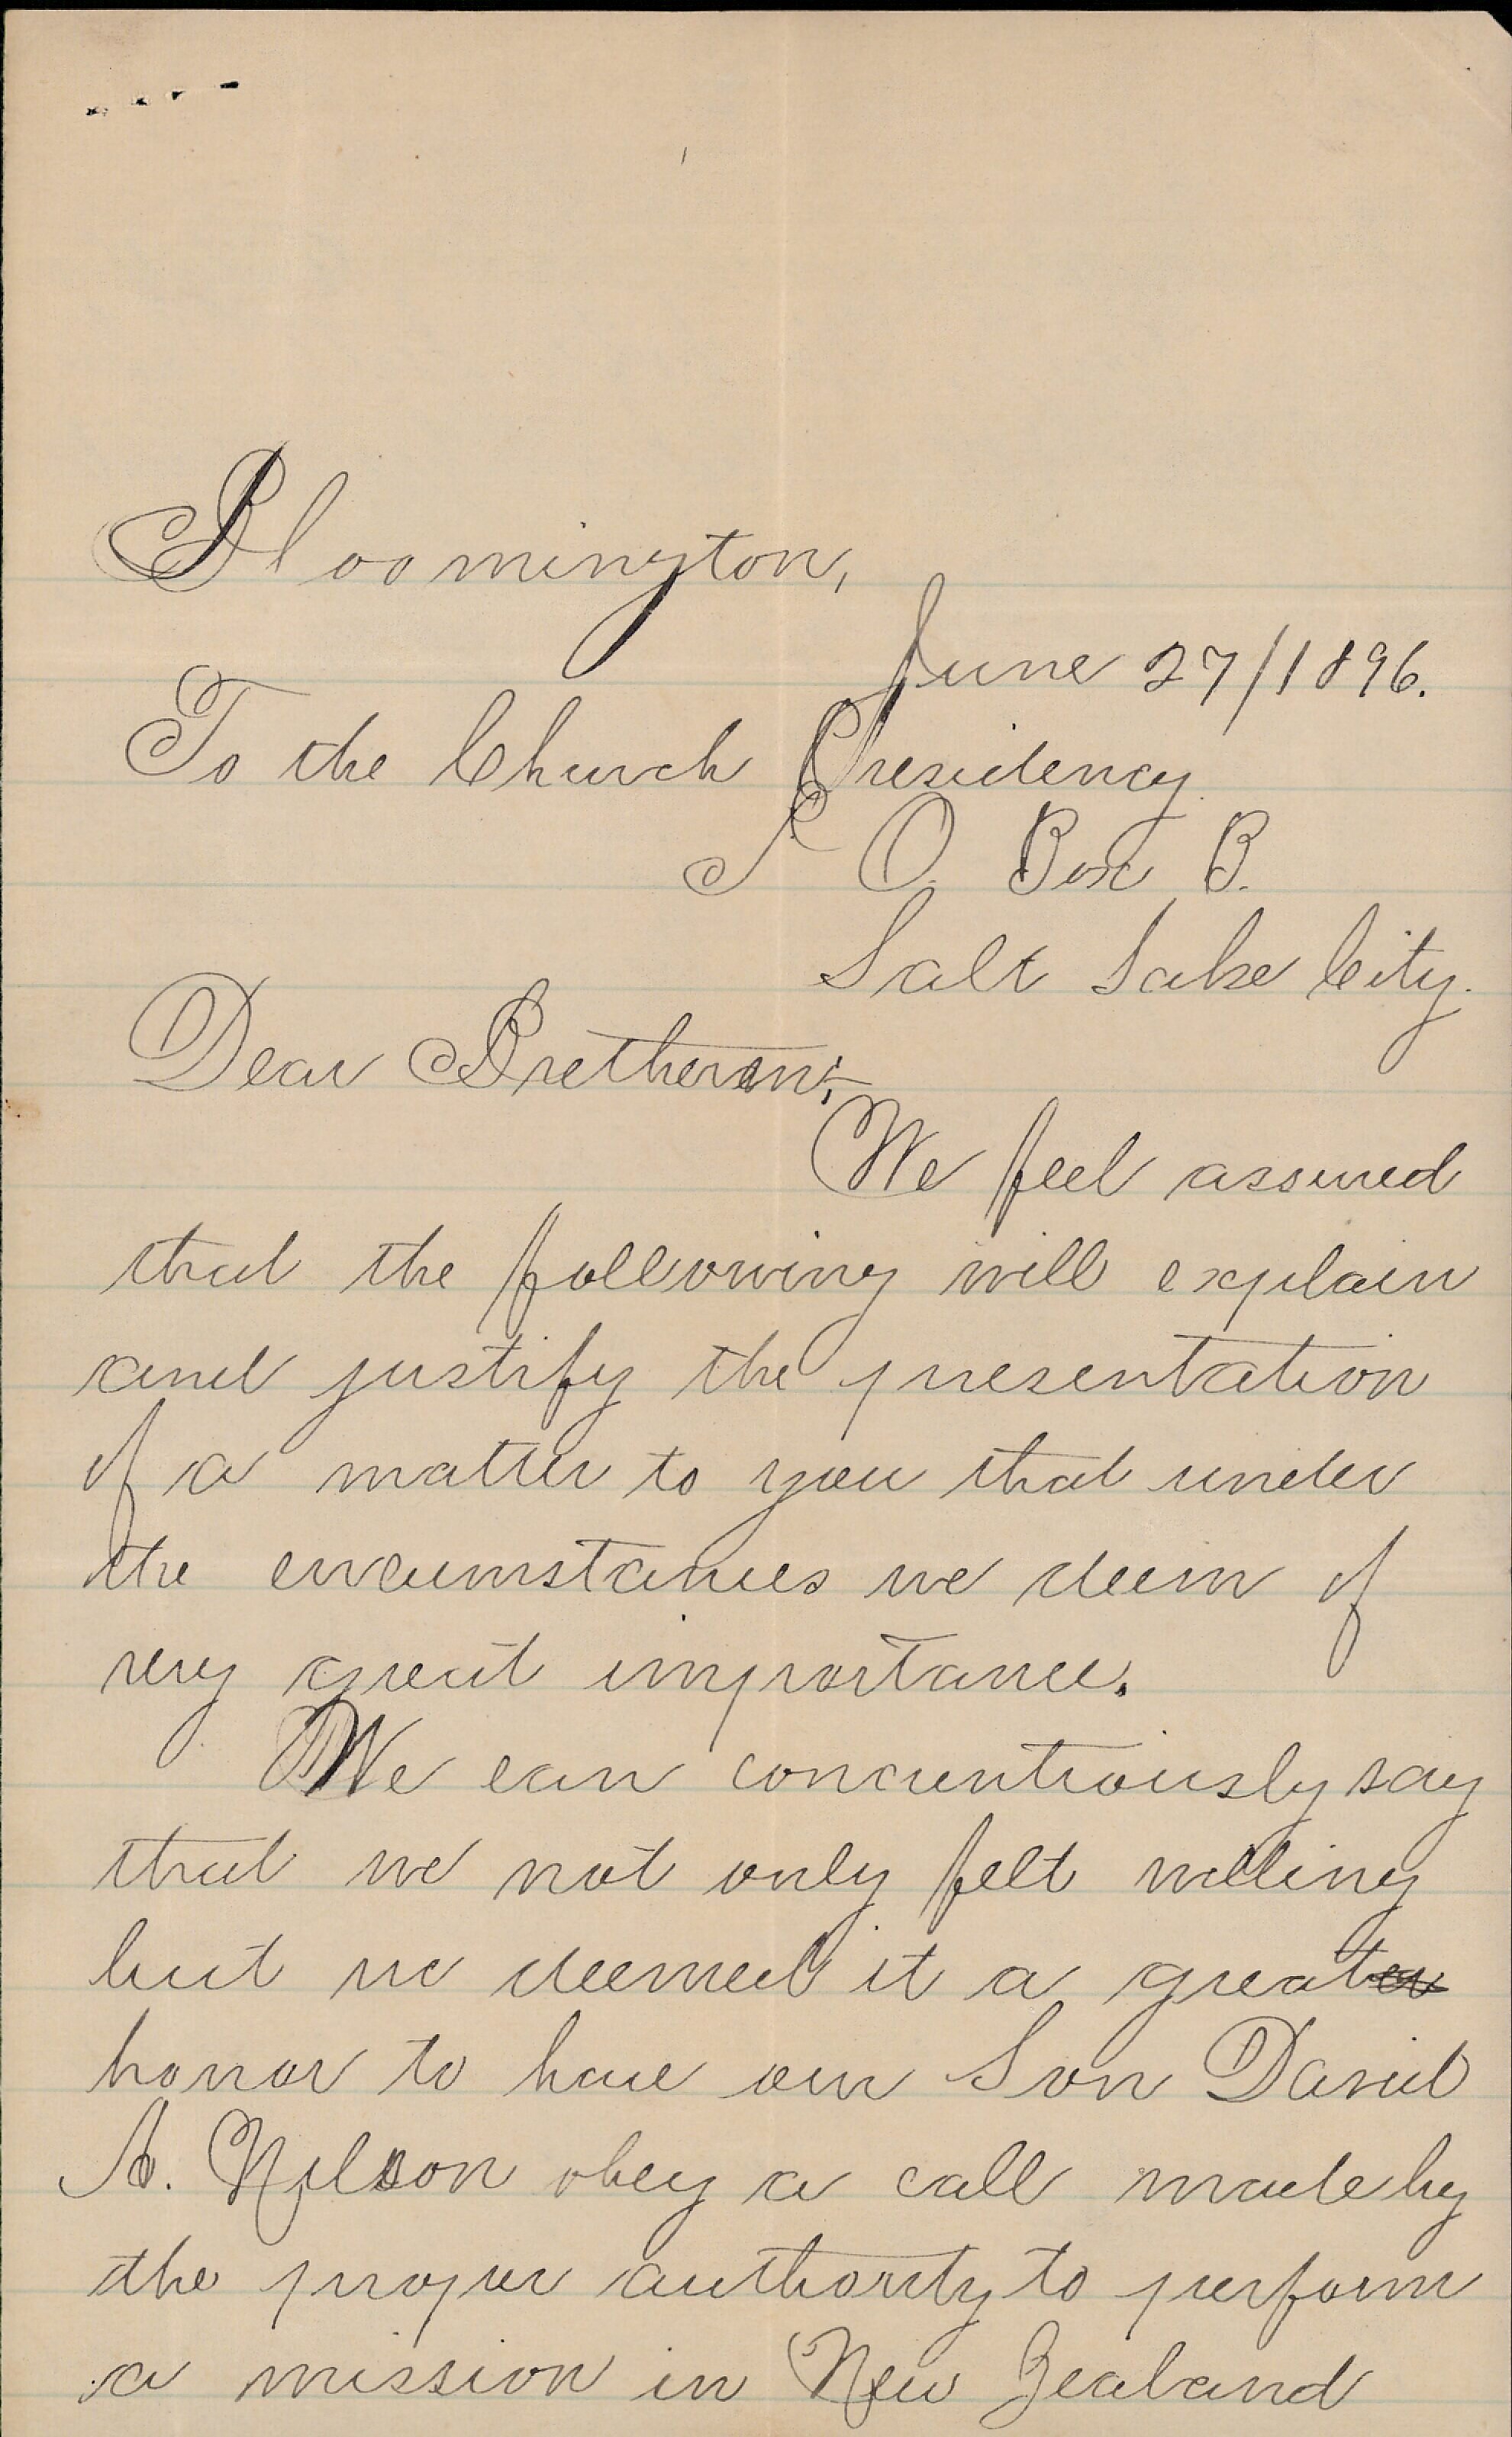 Bloomington,
June 27/1896.
To the Church Presidency
P. O. Box B.
Salt Lake City.
Dear Bretheren;-
We feel assured
that the following will explain
and justify the presentation
of a matter to you that under
the circumstances we deem of
very great importance.
We can concientiously say
that we not only felt willing
but we deemed it a greater
honor to have our Son David
A. Nelson obey a call made by
the proper authority to perform
a mission in New Zealand